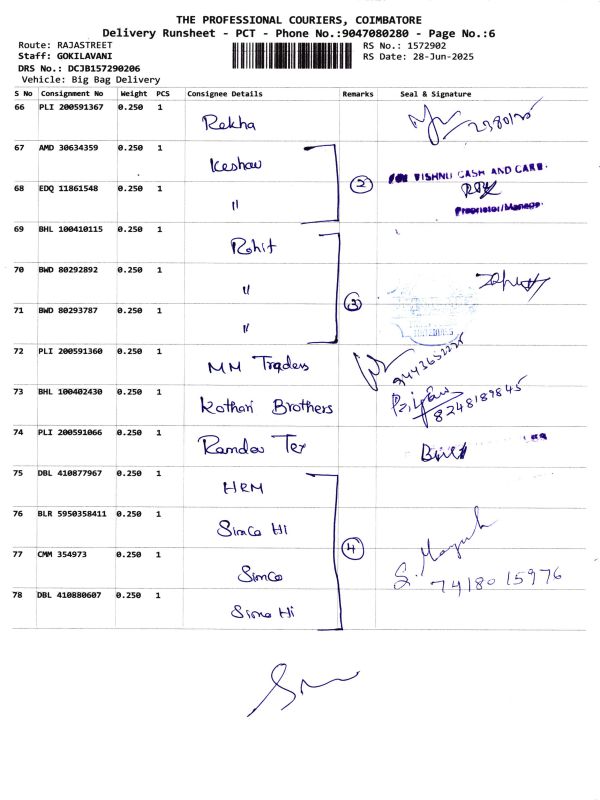 THE PROFESSIONAL COURIERS, COIMBATORE
Delivery Runsheet - PCT - Phone No.:9047080280 - Page No.:6
Route: RAJASTREET RS No.: 1572902
Staff: GOKILAVANI RS Date: 28-Jun-2025
DRS No.: DCJB157290206
Vehicle: Big Bag Delivery
S No Consignment No Weight PCS Consignee Details Remarks Seal & Signature
66 PLI 200591367 0.250 1 Rekha
67 AMD 30634359 0.250 1 Keshav
FOR VISHNU CASH AND CARE.
68 EDQ 11861548 0.250 1 " 2
Proprietor/Manager
69 BHL 100410115 0.250 1 Rohit
70 BWD 80292892 0.250 1 "
71 BWD 80293787 0.250 1 " 3
72 PLI 200591360 0.250 1 MM Traders 9443652228
73 BHL 100402430 0.250 1 Kothari Brothers 8248189845
74 PLI 200591066 0.250 1 Ramdev Tex
75 DBL 410877967 0.250 1 HRM
76 BLR 5950358411 0.250 1 Simco Hi
77 CMM 354973 0.250 1 Simco 4 7418015976
78 DBL 410880607 0.250 1 Simco Hi